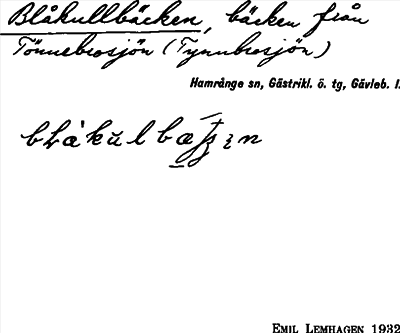 Blåkullbäcken, bäcken från
Tönnebrosjön (Tynnbrosjön)
Hamrånge sn, Gästrikl. ö. tg, Gävleb. l.
EMIL LEMHAGEN 1932